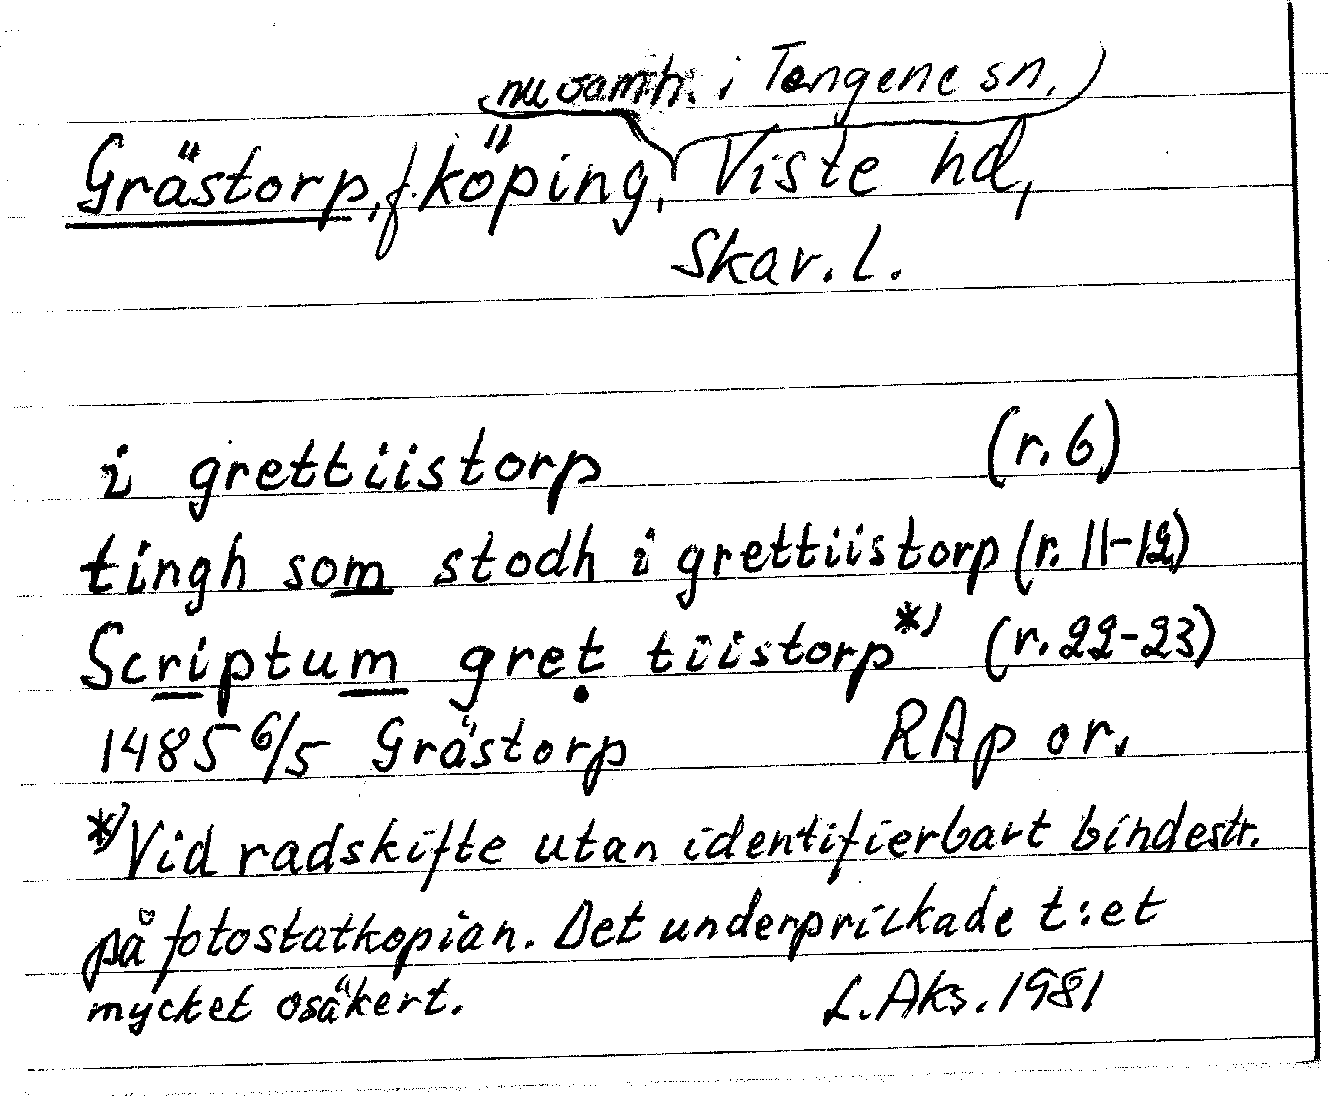 nu samh. i Tengene sn.
Grästorp, f. köping, Viste hd,
Skar. l.
i grettiistorp (r. 6)
tingh som stodh i grettiistorp (r. 11-12)
Scriptum greṭ tiistorp*) (r. 22-23)
1485 6/5 Grästorp RAp or.
*) Vid radskifte utan identifierbart bindestr.
på fotostatkopian. Det underprickade t:et
mycket osäkert. L. Aks. 1981